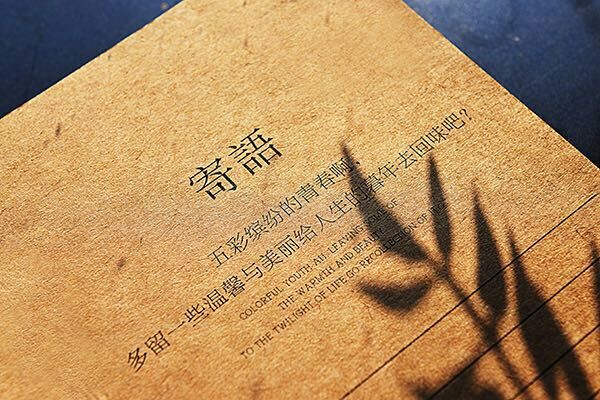 寄語
五彩缤纷的青春啊，
多留一些温馨与美丽给人生的暮年去回味吧？
COLORFUL YOUTH AH, LEAVING SOME OF
THE WARMTH AND BEAUTY
TO THE TWILIGHT OF LIFE GO RECOLLECTION OF